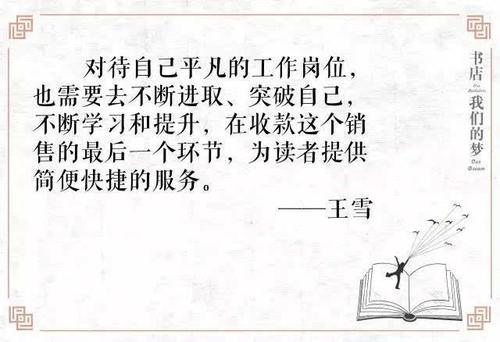 对待自己平凡的工作岗位，
也需要去不断进取、突破自己，
不断学习和提升，在收款这个销
售的最后一个环节，为读者提供
简便快捷的服务。
——王雪
书店
我们的梦
Our
Dream